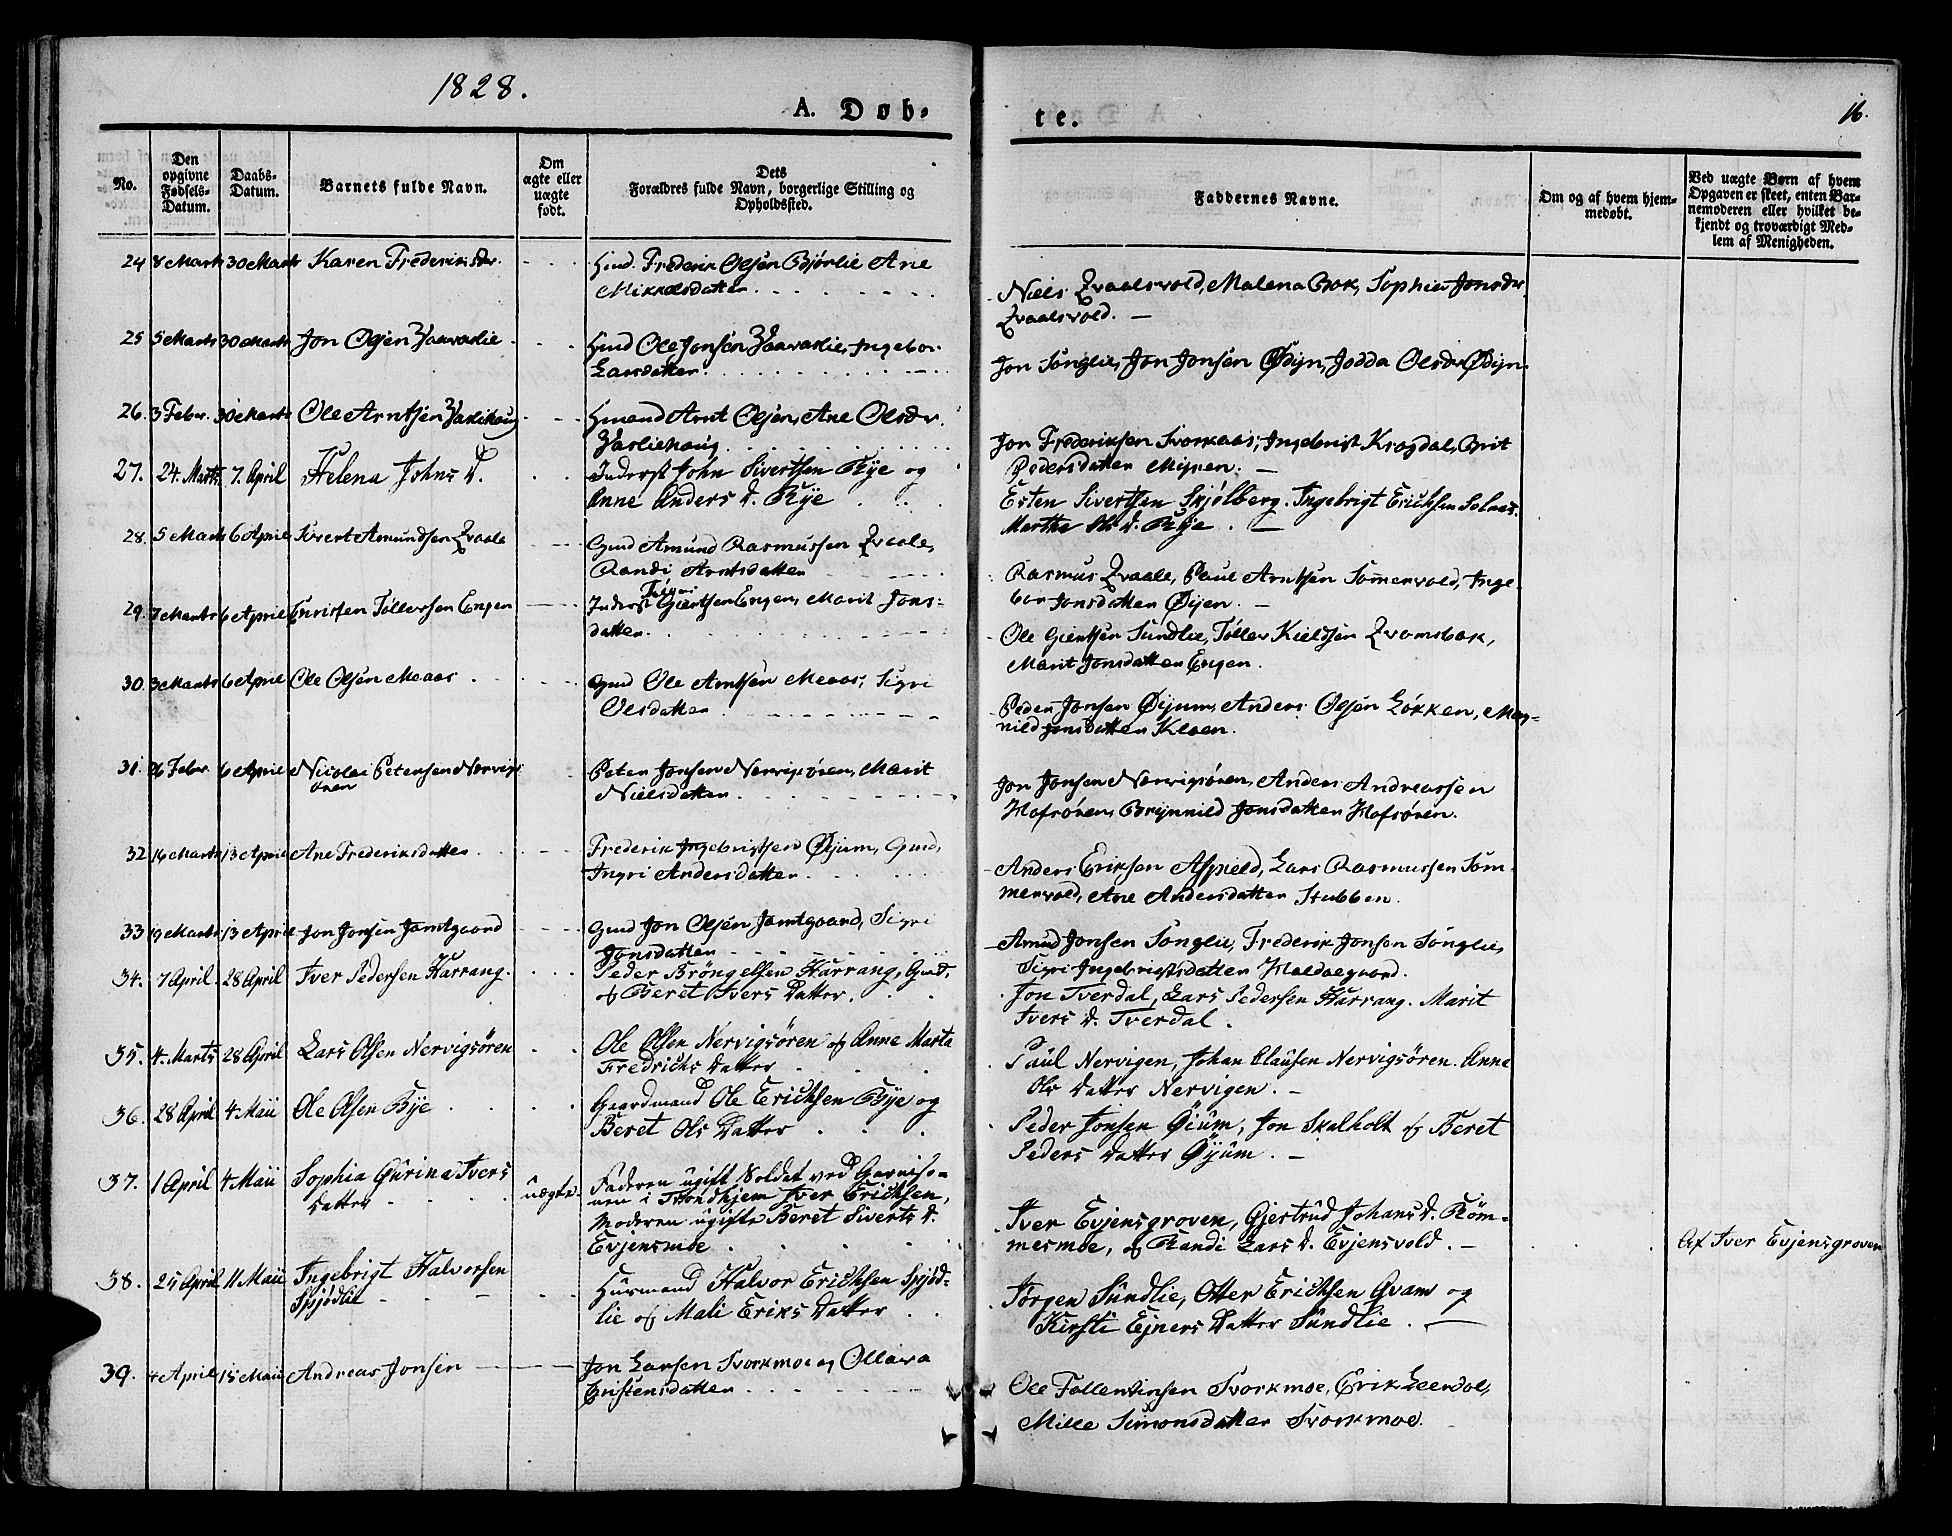 1828.
A. Døb-
te.
16.
No.
Den opgivne Fødsels-Datum.
Daabs-Datum.
Barnets fulde Navn.
Om ægte eller uægte født.
Dets
Forældres fulde Navn, borgerlige Stilling og
Opholdssted.
Faddernes Navne.
Om og af hvem hjem-
medøbt.
Ved uægte Børn af hvem
Opgaven er skeet, enten Bar-
nemoderen eller hvilket be-
kjendt og troværdigt Med-
lem af Menigheden.
24 8 Marts 30 Marts Karen Frederiksdr. Hmd. Frederik Olsen Bjørlie Ane
Mikkelsdatter
Niels Qvaalsvold, Malena Bak, Sophia Jonsdr
Qvaalsvold. —
25 5 Marts 30 Marts Jon Olsen Vaavaslie Hmd Ole Jonsen Vaavaslie, Ingebor
Larsdatter.
Jon Songlie, Jon Jonsen Ødyn, Jodda Olsdr Ødyn
26. 3 Febr. 30 Marts Ole Arntsen Vasliehaug Hmand Arnt Olsen, Ane Olsdr.
Vasliehaug
Jon Frederiksen Svorkaas, Ingebrigt Krogdal, Brit
Pedersdatter Myren. —
27. 24. Marts 7. April Helena Johns D. Inderst John Sivertsen Rye og
Anne Anders D. Rye
Esten Sivertsen Skjølberg. Ingebrigt Erichsen Solaas.
Martha Ols D. Rye. —
28. 5 Marts 6 April Sivert Amundsen Qvaale Gmd Amund Rasmussen Qvaale,
Randi Arntsdatter
Rasmus Qvaale, Paul Arntsen Somervold, Inge-
bor Jonsdatter Øyen. —
29. 7 Marts 6 April Cristen Tøllersen Engen Inderst Giertsen Engen, Marit Jons-
datter.
Ole Giertsen Sundlie, Tøller Kieldsen Qvamsbak,
Marit Jonsdatter Engen.
30. 3 Marts 6 April Ole Olsen Meaas Gmd Ole Arntsen Meaas, Sigri
Olsdatter
Peder Jonsen Øyum, Anders Olsen Løkken, Mag-
nild Jonsdatter Kleen.
31. 26 Febr 6 April Nicolai Petersen Nervigs
øren
Peter Jonsen Nervigsøren, Marit
Nielsdatter.
Jon Jonsen Nervigsøren, Anders Andreassen
Hofsøren, Brynnild Jonsdatter Hofsøren.
32 16 Marts 13 April Ane Frederiksdatter Frederik Ingebrigtsen Øyum, Gmd,
Ingri Andersdatter
Anders Eriksen Asfield, Lars Rasmussen Som-
mervold, Ane Andersdatter Stubben.
33 19 Marts 13 April Jon Jonsen Jamtgaard Gmd Jon Olsen Jamtgaard, Sigri
Jonsdatter
Amund Jonsen Songlie, Frederik Jonsen Songlie,
Sigri Ingebrigtsdatter Haldaegaard.
34. 7 April 28 April Iver Pedersen Harrang. Peder Brøngelsen Harrang, Gmd,
og Beret Ivers Datter.
Jon Tverdal, Lars Pedersen Harrang. Marit
Ivers D. Tverdal.
35. 4. Marts 28 April Lars Olsen Nervigsören Ole Olsen Nervigsören og Anne Marta
Fredrichs Datter
Paul Nervigen, Johan Clausen Nervigsören. Anne
Ols Datter Nervigen. —
36. 28 April 4 Maii Ole Olsen Bye Gaardmand Ole Erichsen Bye og
Beret Ols Datter
Peder Jonsen Øium, Jon Skalholt og Beret
Peders Datter Øyum. —
37. 1 April 4 Maii Sophia Gurina Ivers
Datter
uægte.
Faderen ugift Soldat ved Garniso-
nen i Trondhjem Iver Erichsen,
Moderen ugifte Beret Siverts D.
Evjensmoe
Iver Evjensgroven, Gjertrud Johans D. Röm-
mesmoe, og Randi Lars D. Evjensvold. —
Af Iver Evjensgroven
38. 25 April 11 Maii Ingebrigt Halvorsen
Spjødlie
Huusmand Halvor Erichsen Spjød-
lie og Mali Eriks Datter
Jørgen Sundlie, Otter Erichsen Qvam og
Kirsti Ejners Datter Sundlie. —
39. 4 April 15 Maii Andreas Jonsen Jon Larsen Svorkmoe og Ollava
Cristensdatter
Ole Follentinsen Svorkmoe, Erik Leerdal,
Mille Simonsdatter Svorkmoe.